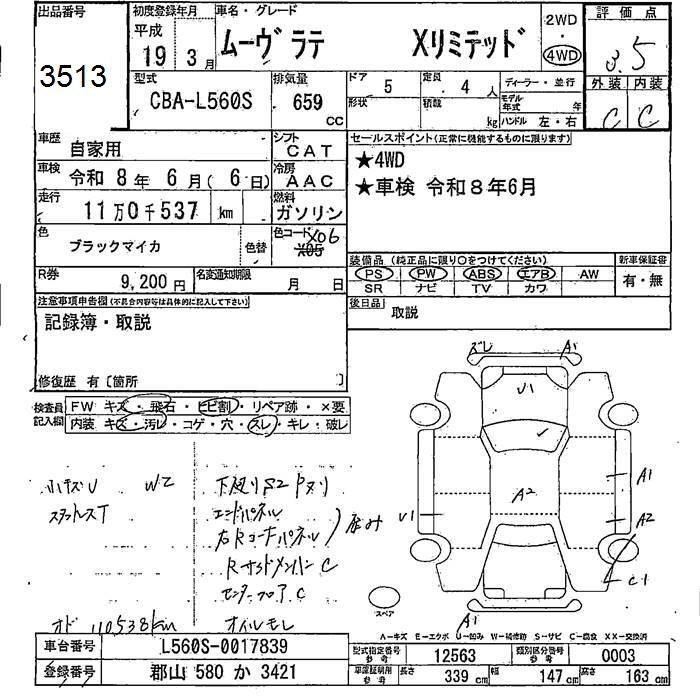 出品番号
3513
初度登録年月
平成
19年 3月
車名・グレード
ムーヴ ラテ Xリミテッド
2WD
・
4WD
評価点
3.5
型式
CBA-L560S
排気量
659
cc
ドア 5
定員 4 人
形状
積載 kg
ディーラー・並行
モデル年式 年
ハンドル 左・右
外装 内装
C C
車歴
自家用
シフト
CAT
車検
令和 8 年 6 月 ( 6 日)
冷房
AAC
走行
11万0千537 km
燃料
ガソリン
色
ブラックマイカ
色替
色コード
X06
X05
セールスポイント(正常に機能するものに限ります)
★4WD
★車検 令和8年6月
R券
9,200 円
名変通知期限
月 日
装備品 (純正品に限り○をつけてください)
PS PW ABS エアB AW
SR ナビ TV カワ
新車保証書
有・無
後日品
取説
注意事項申告欄(不具合内容等は具体的に記入して下さい)
記録簿・取説
修復歴 有〔箇所 〕
検査員
記入欄
FW キズ・飛石・ヒビ割・リペア跡・×要
内装 キズ・汚レ・コゲ・穴・スレ・キレ・破レ
ズレ A1
U1
A2
U1
A1
A2
C1
A1
スペア
小キズU W2
スタットレスT
下廻りS2 P ヌリ
エンドパネル
右Rコーナーパネル
凹み
RサイドメンバーC
センターフロアC
オド 110538km
オイルモレ
A-キズ E-エクボ U-凹み W-補修跡 S-サビ C-腐食 XX-交換済
車台番号
L560S-0017839
登録番号
郡山 580 か 3421
型式指定番号
参考
12563
類別区分番号
参考
0003
車庫証明用
参考
長さ 339 cm
幅 147 cm
高さ 163 cm